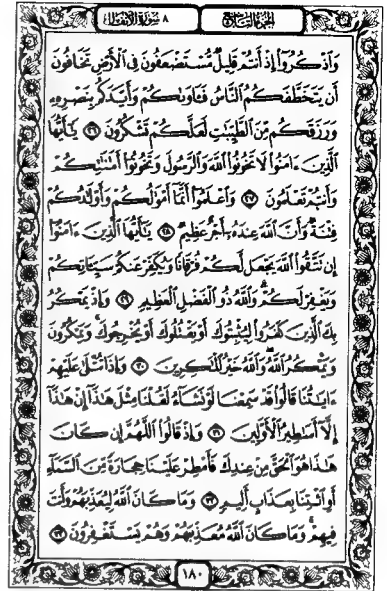 الجزء التاسع ٨ سورة الأنفال
وَٱذۡكُرُوٓاْ إِذۡ أَنتُمۡ قَلِيلٞ مُّسۡتَضۡعَفُونَ فِي ٱلۡأَرۡضِ تَخَافُونَ
أَن يَتَخَطَّفَكُمُ ٱلنَّاسُ فَـَٔاوَىٰكُمۡ وَأَيَّدَكُم بِنَصۡرِهِۦ
وَرَزَقَكُم مِّنَ ٱلطَّيِّبَٰتِ لَعَلَّكُمۡ تَشۡكُرُونَ ٢٦ يَٰٓأَيُّهَا
ٱلَّذِينَ ءَامَنُواْ لَا تَخُونُواْ ٱللَّهَ وَٱلرَّسُولَ وَتَخُونُوٓاْ أَمَٰنَٰتِكُمۡ
وَأَنتُمۡ تَعۡلَمُونَ ٢٧ وَٱعۡلَمُوٓاْ أَنَّمَآ أَمۡوَٰلُكُمۡ وَأَوۡلَٰدُكُمۡ
فِتۡنَةٞ وَأَنَّ ٱللَّهَ عِندَهُۥٓ أَجۡرٌ عَظِيمٞ ٢٨ يَٰٓأَيُّهَا ٱلَّذِينَ ءَامَنُوٓاْ
إِن تَتَّقُواْ ٱللَّهَ يَجۡعَل لَّكُمۡ فُرۡقَانٗا وَيُكَفِّرۡ عَنكُمۡ سَيِّـَٔاتِكُمۡ
وَيَغۡفِرۡ لَكُمۡۗ وَٱللَّهُ ذُو ٱلۡفَضۡلِ ٱلۡعَظِيمِ ٢٩ وَإِذۡ يَمۡكُرُ
بِكَ ٱلَّذِينَ كَفَرُواْ لِيُثۡبِتُوكَ أَوۡ يَقۡتُلُوكَ أَوۡ يُخۡرِجُوكَۚ وَيَمۡكُرُونَ
وَيَمۡكُرُ ٱللَّهُۖ وَٱللَّهُ خَيۡرُ ٱلۡمَٰكِرِينَ ٣٠ وَإِذَا تُتۡلَىٰ عَلَيۡهِمۡ
ءَايَٰتُنَا قَالُواْ قَدۡ سَمِعۡنَا لَوۡ نَشَآءُ لَقُلۡنَا مِثۡلَ هَٰذَآ إِنۡ هَٰذَآ
إِلَّآ أَسَٰطِيرُ ٱلۡأَوَّلِينَ ٣١ وَإِذۡ قَالُواْ ٱللَّهُمَّ إِن كَانَ
هَٰذَا هُوَ ٱلۡحَقَّ مِنۡ عِندِكَ فَأَمۡطِرۡ عَلَيۡنَا حِجَارَةٗ مِّنَ ٱلسَّمَآءِ
أَوِ ٱئۡتِنَا بِعَذَابٍ أَلِيمٖ ٣٢ وَمَا كَانَ ٱللَّهُ لِيُعَذِّبَهُمۡ وَأَنتَ
فِيهِمۡۚ وَمَا كَانَ ٱللَّهُ مُعَذِّبَهُمۡ وَهُمۡ يَسۡتَغۡفِرُونَ ٣٣
١٨٠